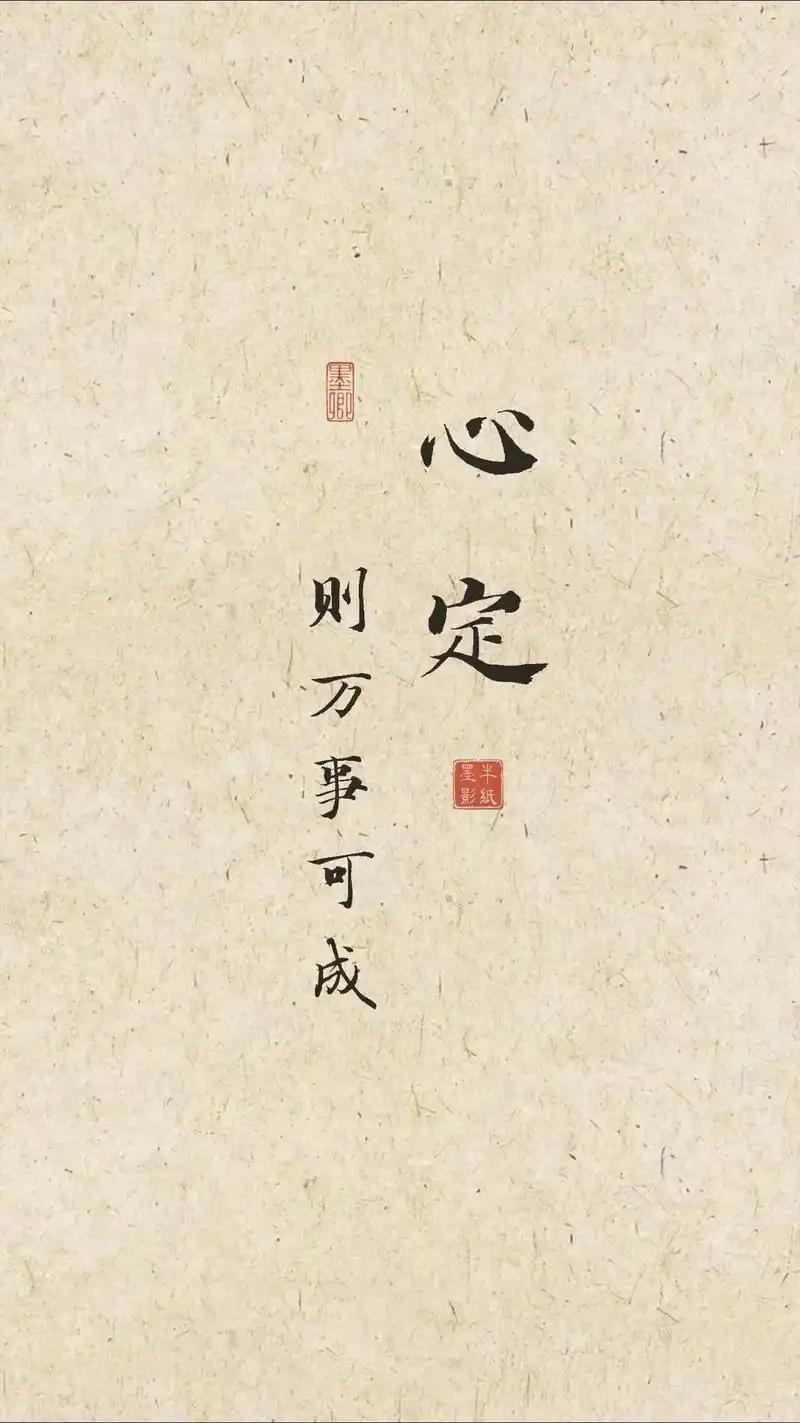 心定
半纸墨影
墨卿
则万事可成